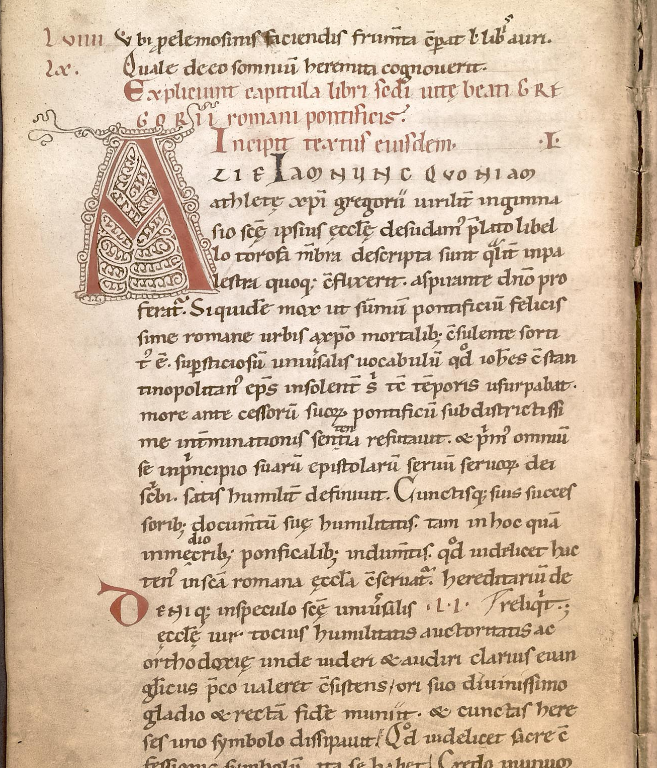 Lviiii Vbi pelemosinis faciendis frum̄ta c̄perat l̄ lib᷒ auri.
Lx. Quale de eo somniū heremita cognouerit.
Expliciunt capitula libri sc̄di uitę beati GRE
GORII romani pontificis.
Incipit textus eiusdem. .I.
A LIE IAM NUNC QVONIAM
athletę xp̄i gregorii uirilit̄ in gimna
sio scę̄ ipsius ęcclę̄ desudant᷒ p̄lato libel
lo torosa m̄bra descripta sunt q̄lit̄ in pa
lestra quoq; c̄flixerit. aspirante dn̄o pro
ferat᷒. Siquidē mox ut sūmū pontificiū felicis
sime romane urbis a xp̄o mortalib; c̄sulente sorti
t᷒ ē. sup̄sticiosū uniūsalis uocabulū qd̄ ioh̄es c̄stan
tinopolitan᷒ ep̄s insolent̄ s̄ tē tēporis usurpabat.
more antecessorū suoꝝ pontificū sub districtissi
me int̄minationis sententia refutauit. & p̄m᷒ omniū
se in p̄ncipio suarū epistolarū seruū seruoꝝ dei
sc̄bi. satis humilit̄ definiuit. Cunctisq; suis succes
sorib; docum̄tū suę humilitatis. tam in hoc quā
in mediocrib; pontificalib; indum̄tis. qd̄ uidelicet hac
ten᷒ in sc̄a romana ęccl̄a c̄seruat᷒. hereditariū de
DENIQ; in speculo scę̄ uniūsalis .II. reliq̄t.;
ęcclę̄ uir totius humilitatis auctoritatis ac
orthodoxię unde uideri & audiri clarius euan
gl̄icus p̄co ualeret c̄sistens, ori suo diuinissimo
gladio & rectā fidē muniit. & cunctas here
ses uno symbolo dissipauit. Qd̄ uidelicet sacre c̄
fessionis symbolū ita se habet. Credo in unum